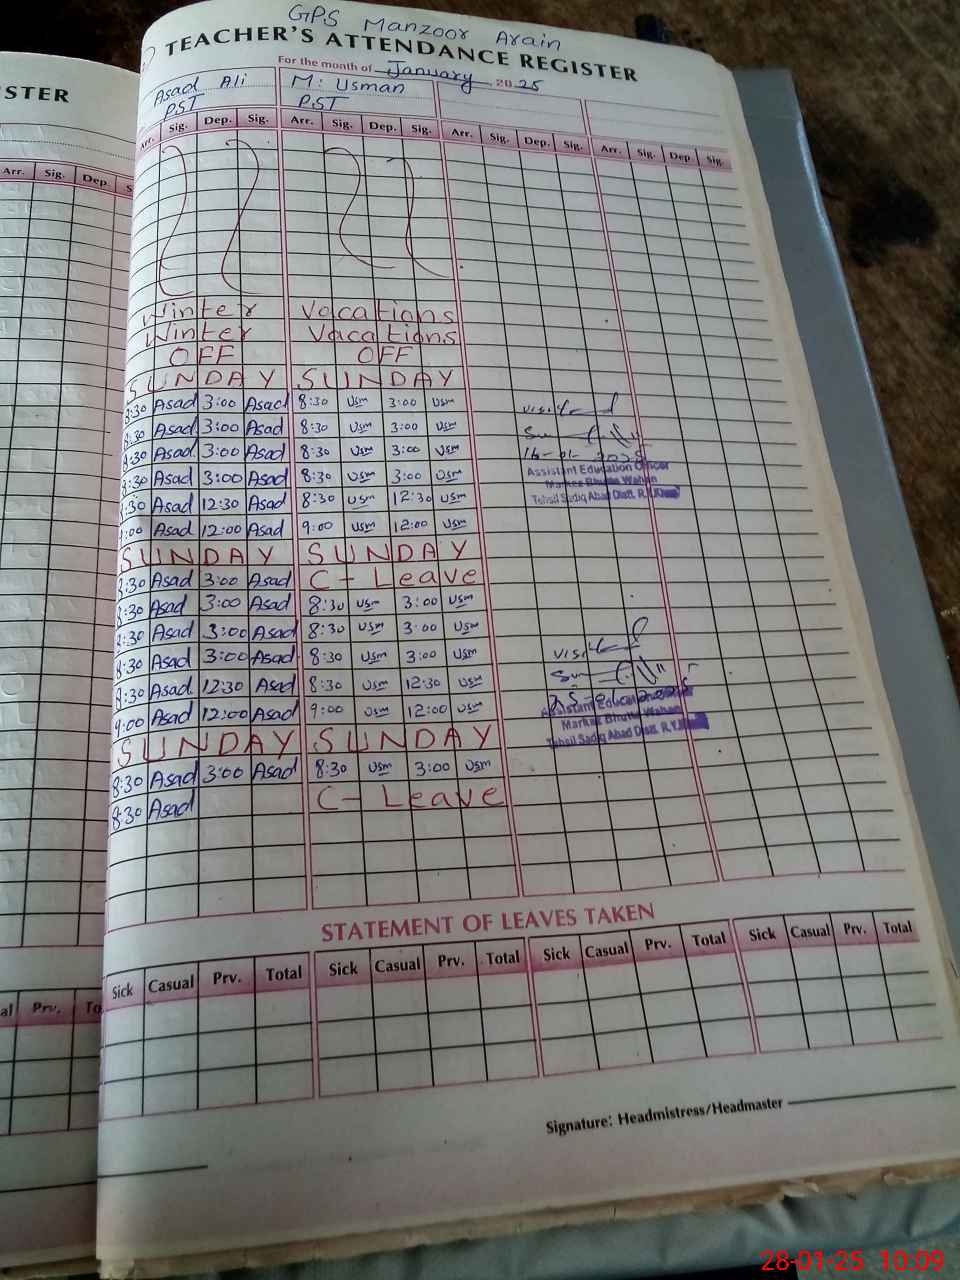 GPS Manzoor Arain
STER
TEACHER'S ATTENDANCE REGISTER
For the month of January 2025
Asad Ali M: Usman
PST PST
Arr. Sig. Dep. S
Arr. Sig. Dep. Sig. Arr. Sig. Dep. Sig. Arr. Sig. Dep. Sig. Arr. Sig. Dep. Sig.
Winter Vacations
Winter Vacations
OFF OFF
SUNDAY SUNDAY
8:30 Asad 3:00 Asad 8:30 Usm 3:00 Usm
8:30 Asad 3:00 Asad 8:30 Usm 3:00 Usm
8:30 Asad 3:00 Asad 8:30 Usm 3:00 Usm
8:30 Asad 3:00 Asad 8:30 Usm 3:00 Usm
8:30 Asad 12:30 Asad 8:30 Usm 12:30 Usm
9:00 Asad 12:00 Asad 9:00 Usm 12:00 Usm
visited
16-01-2025
Assistant Education Officer
Markaz Bhutta Wahan
Tehsil Sadiq Abad Distt. R.Y.Khan
SUNDAY SUNDAY
8:30 Asad 3:00 Asad C- Leave
8:30 Asad 3:00 Asad 8:30 Usm 3:00 Usm
8:30 Asad 3:00 Asad 8:30 Usm 3:00 Usm
8:30 Asad 3:00 Asad 8:30 Usm 3:00 Usm
8:30 Asad 12:30 Asad 8:30 Usm 12:30 Usm
9:00 Asad 12:00 Asad 9:00 Usm 12:00 Usm
visited
Assistant Education Officer
Markaz Bhutta Wahan
Tehsil Sadiq Abad Distt. R.Y.Khan
SUNDAY SUNDAY
8:30 Asad 3:00 Asad 8:30 Usm 3:00 Usm
8:30 Asad C- Leave
STATEMENT OF LEAVES TAKEN
al Prv. To
Sick Casual Prv. Total Sick Casual Prv. Total Sick Casual Prv. Total Sick Casual Prv. Total
Signature: Headmistress/Headmaster
28-01-25 10:09